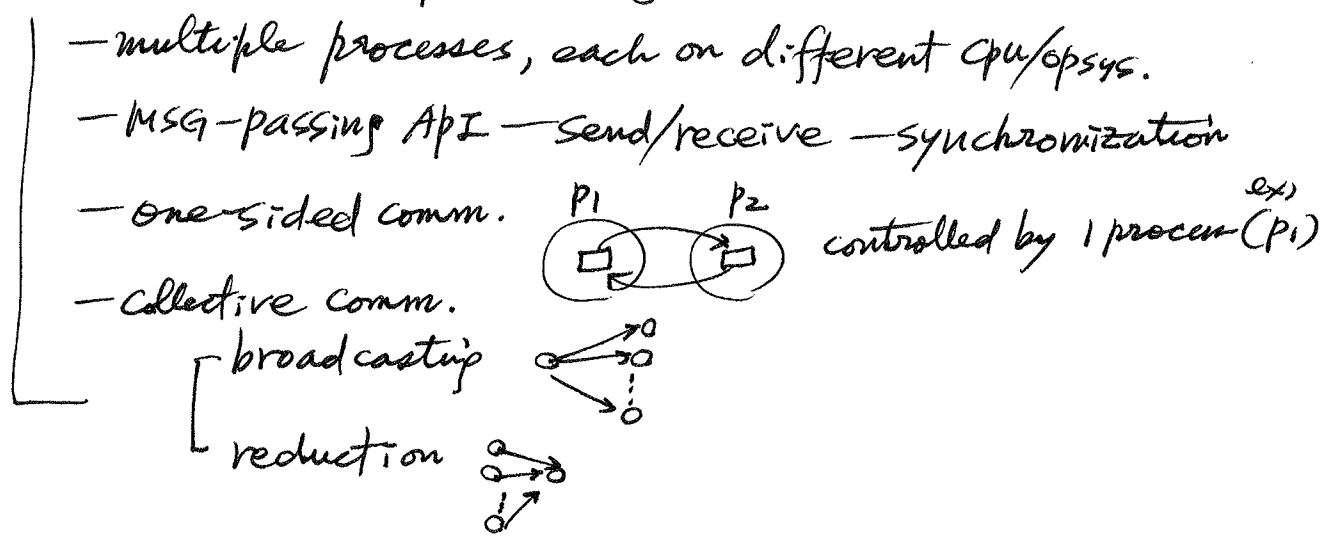 — multiple processes, each on different cpu/opsys.
— MSG-passing API — send/receive — synchronization
— one-sided comm. P1 P2 controlled by 1 process (P1) ex)
— collective comm.
broadcasting
reduction